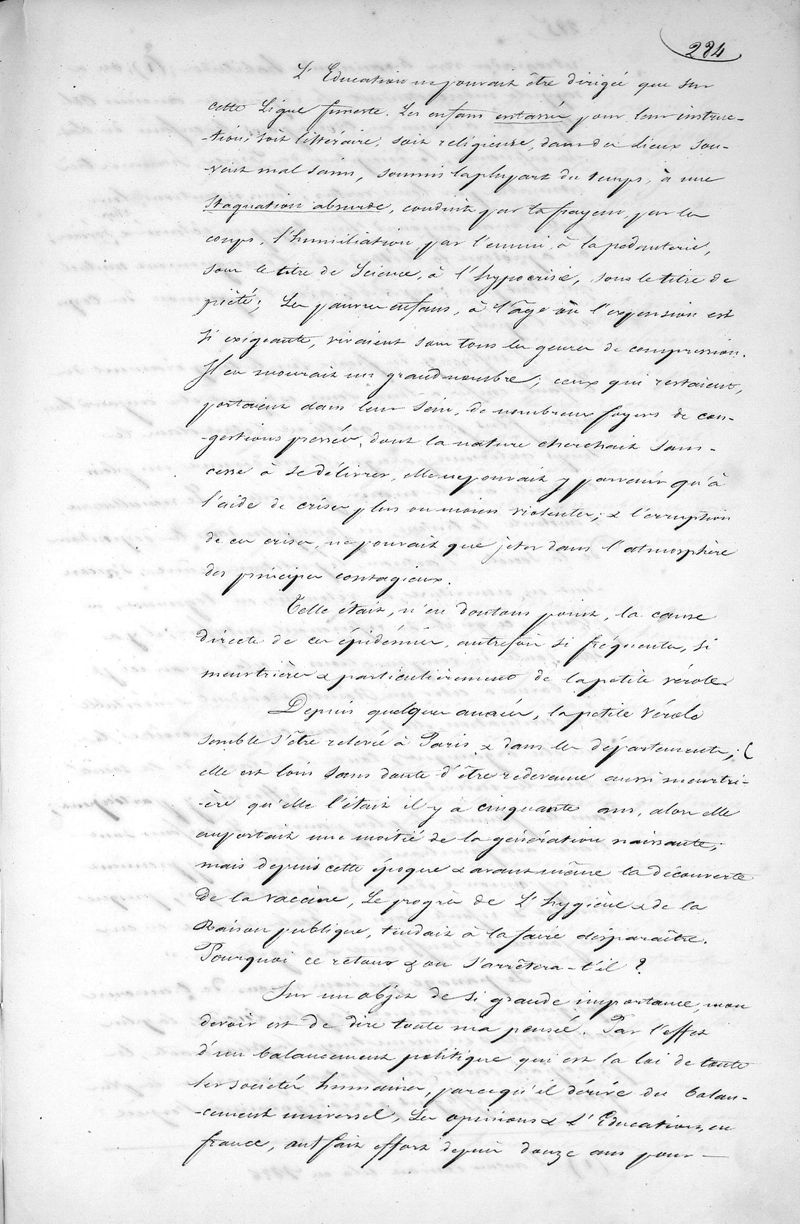 224
L'Education ne pouvait être dirigée que sur
cette Ligne funeste. Les enfans entassés pour leur instruc-
-tion, soit littéraire, soit religieuse, dans des Lieux sou-
-vent mal sains, soumis la plupart du temps, à une
stagnation absurde, conduits par la frayeur, par les
coups, l'humiliation, par l'ennui, à la pédanterie,
sous le titre de Science, à l'hypocrisie, sous le titre de
piété; Les pauvres enfans, à l'âge où l'expension est
si exigeante, vivaient sous tous les genres de compression.
Il en mourait un grand nombre; ceux qui restaient,
portaient dans leur sein, de nombreux foyers de con-
-gestions pressées, dont la nature cherchait sans-
cesse à se délivrer, elle ne pouvait y parvenir qu'à
l'aide de crises plus ou moins violentes; & l'erruption
de ces crises, ne pouvait que jeter dans l'atmosphère
des principes contagieux.
Telle était, n'en doutons point, la cause
directe de ces épidémies, autrefois si fréquentes, si
meurtrières & particulièrement de la petite vérole.
Depuis quelques années, la petite Vérole
semble s'être relevée à Paris & dans les départements;
elle est loin sans doute d'être redevenue aussi meurtri-
-ère qu'elle l'était il y a cinquante ans, alors elle
emportait une moitié de la génération naissante;
mais depuis cette époque & avant même la découverte
de la vaccine, Le progrès de L'hygiène & de la
Raison publique, tendait à la faire disparaître.
Pourquoi ce retour & où s'arrêtera-t'il ?
Sur un objet de si grande importance, mon
devoir est de dire toute ma pensée. Par l'effet
d'un balancement politique qui est la loi de toute
les sociétés humaines, parcequ'il dérive du balan-
-cement universel, Les opinions & L'Education, en
france, ont fait effort depuis douze ans pour